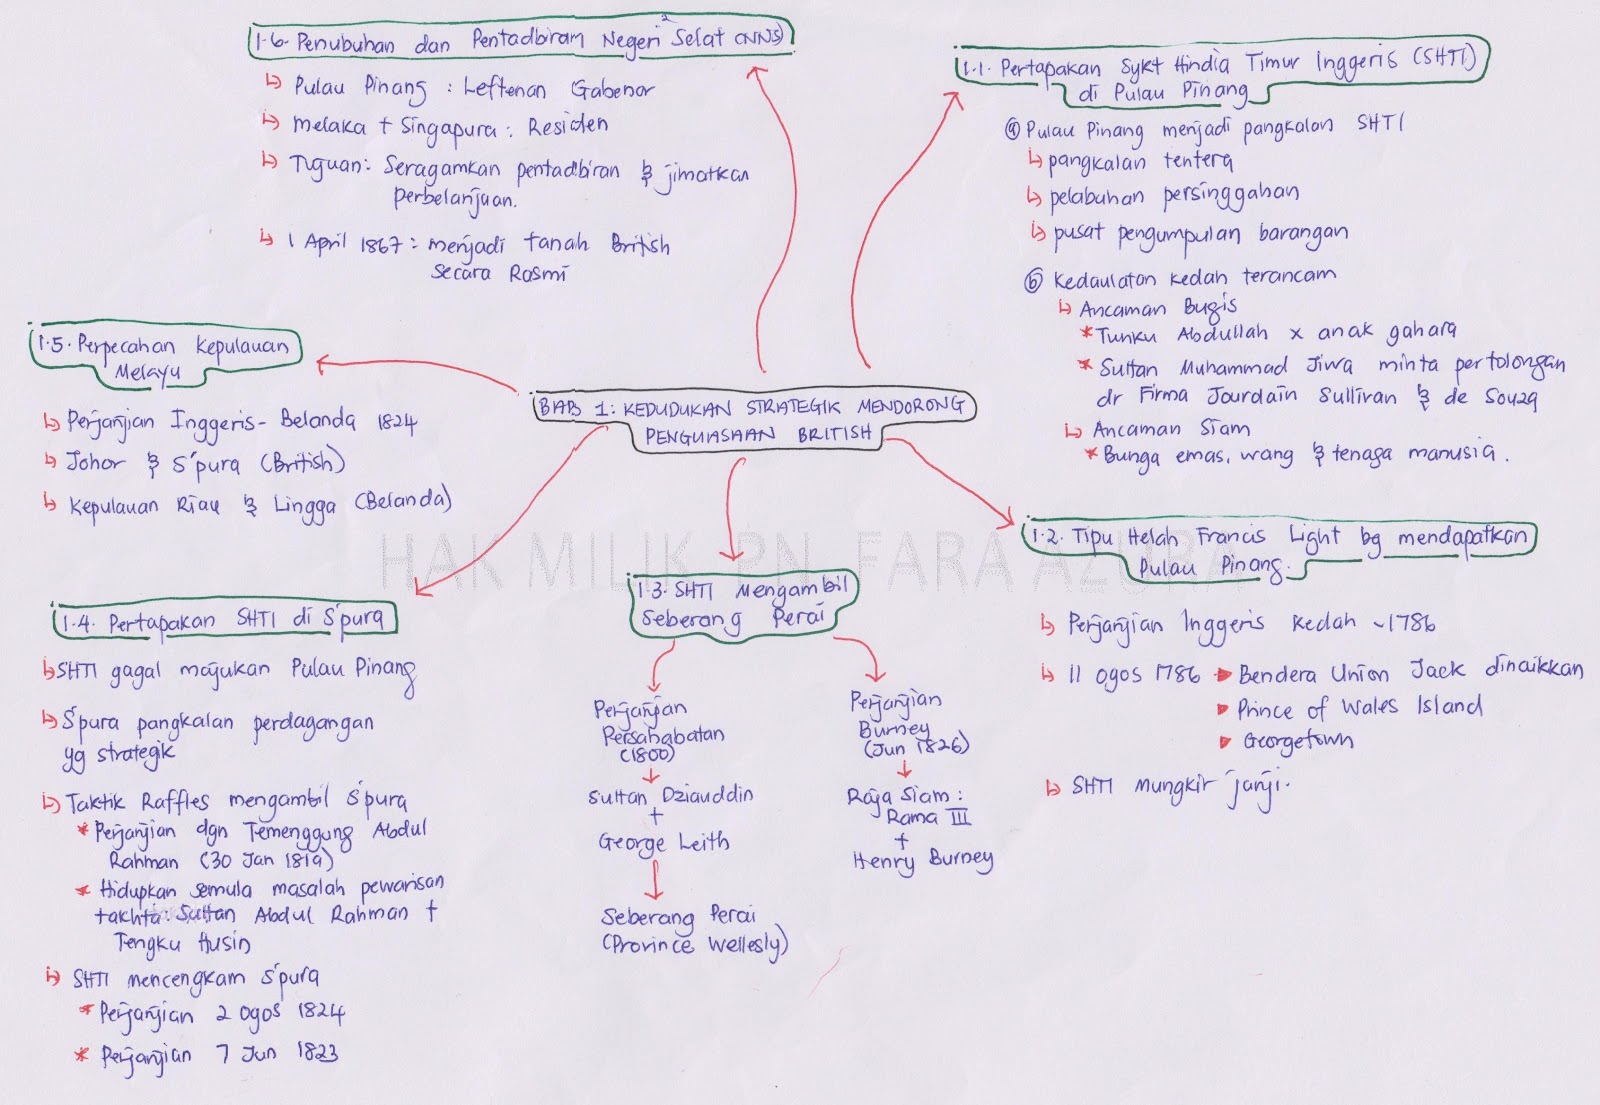 BAB 1: KEDUDUKAN STRATEGIK MENDORONG
PENGUASAAN BRITISH
1.1. Pertapakan Sykt Hindia Timur Inggeris (SHTI)
di Pulau Pinang
a Pulau Pinang menjadi pangkalan SHTI
↳ pangkalan tentera
↳ pelabuhan persinggahan
↳ pusat pengumpulan barangan
b Kedaulatan Kedah terancam
↳ Ancaman Bugis
* Tunku Abdullah x anak gahara
* Sultan Muhammad Jiwa minta pertolongan
dr Firma Jourdain Sullivan & de Souza
↳ Ancaman Siam
* Bunga emas, wang & tenaga manusia.
1.2. Tipu Helah Francis Light bg mendapatkan
Pulau Pinang.
↳ Perjanjian Inggeris Kedah ~1786
↳ 11 Ogos 1786 ► Bendera Union Jack dinaikkan
► Prince of Wales Island
► Georgetown
↳ SHTI mungkir janji.
1.3. SHTI Mengambil
Seberang Perai
Perjanjian
Persahabatan
(1800)
Sultan Dziauddin
+
George Leith
Seberang Perai
(Province Wellesly)
Perjanjian
Burney
(Jun 1826)
Raja Siam:
Rama III
+
Henry Burney
1.4. Pertapakan SHTI di S'pura
↳ SHTI gagal majukan Pulau Pinang
↳ S'pura pangkalan perdagangan
yg strategik
↳ Taktik Raffles mengambil S'pura
* Perjanjian dgn Temenggung Abdul
Rahman (30 Jan 1819)
* Hidupkan semula masalah pewarisan
takhta: Sultan Abdul Rahman +
Tengku Husin
↳ SHTI mencengkam S'pura
* Perjanjian 2 Ogos 1824
* Perjanjian 7 Jun 1823
1.5. Perpecahan Kepulauan
Melayu
↳ Perjanjian Inggeris-Belanda 1824
↳ Johor & S'pura (British)
↳ Kepulauan Riau & Lingga (Belanda)
1.6. Penubuhan dan Pentadbiram Negeri² Selat (NNS)
↳ Pulau Pinang : Leftenan Gabenor
↳ Melaka + Singapura : Residen
↳ Tujuan: Seragamkan pentadbiran & jimatkan
perbelanjaan.
↳ 1 April 1867 : menjadi tanah British
secara Rasmi
HAK MILIK PN FARA AZURA